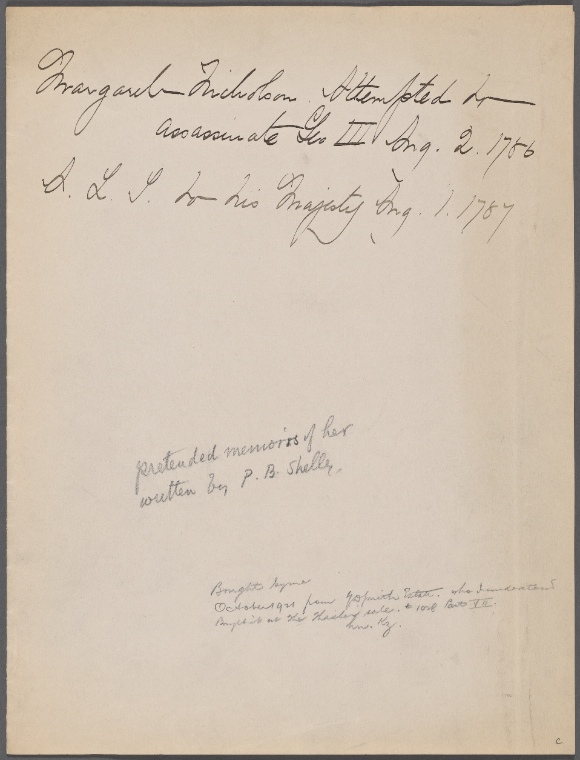 Margaret Nicholson. Attempted to
assassinate Geo III Aug. 2. 1786
A. L. S. to his Majesty Aug. 1. 1787
pretended memoirs of her
written by P. B. Shelley.
Bought by me
October 1921 from Smith Estate. who I understand
Bought it at the sale. # Part VII.
c